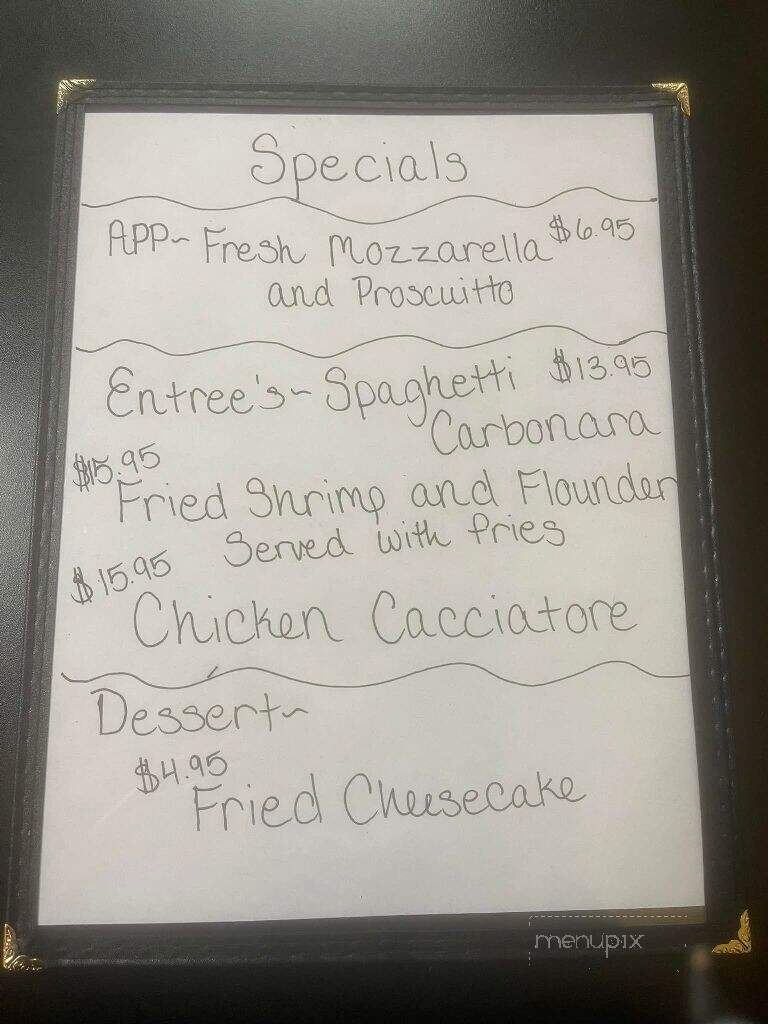 Specials
APP~ Fresh Mozzarella $6.95
and Proscuitto
Entree's~ Spaghetti $13.95
Carbonara
$15.95
Fried Shrimp and Flounder
Served with fries
$15.95
Chicken Cacciatore
Dessert~
$4.95
Fried Cheesecake
menupix